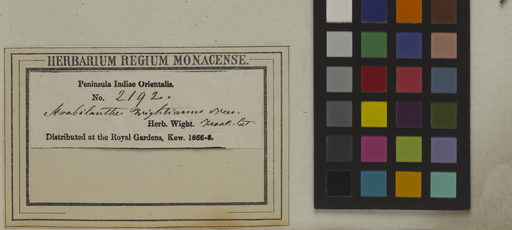 HERBARIUM REGIUM MONACENSE.
Peninsula Indiae Orientalis.
No. 2192.
Wightianus Nees.
Herb. Wight.
Distributed at the Royal Gardens, Kew. 1866-8.